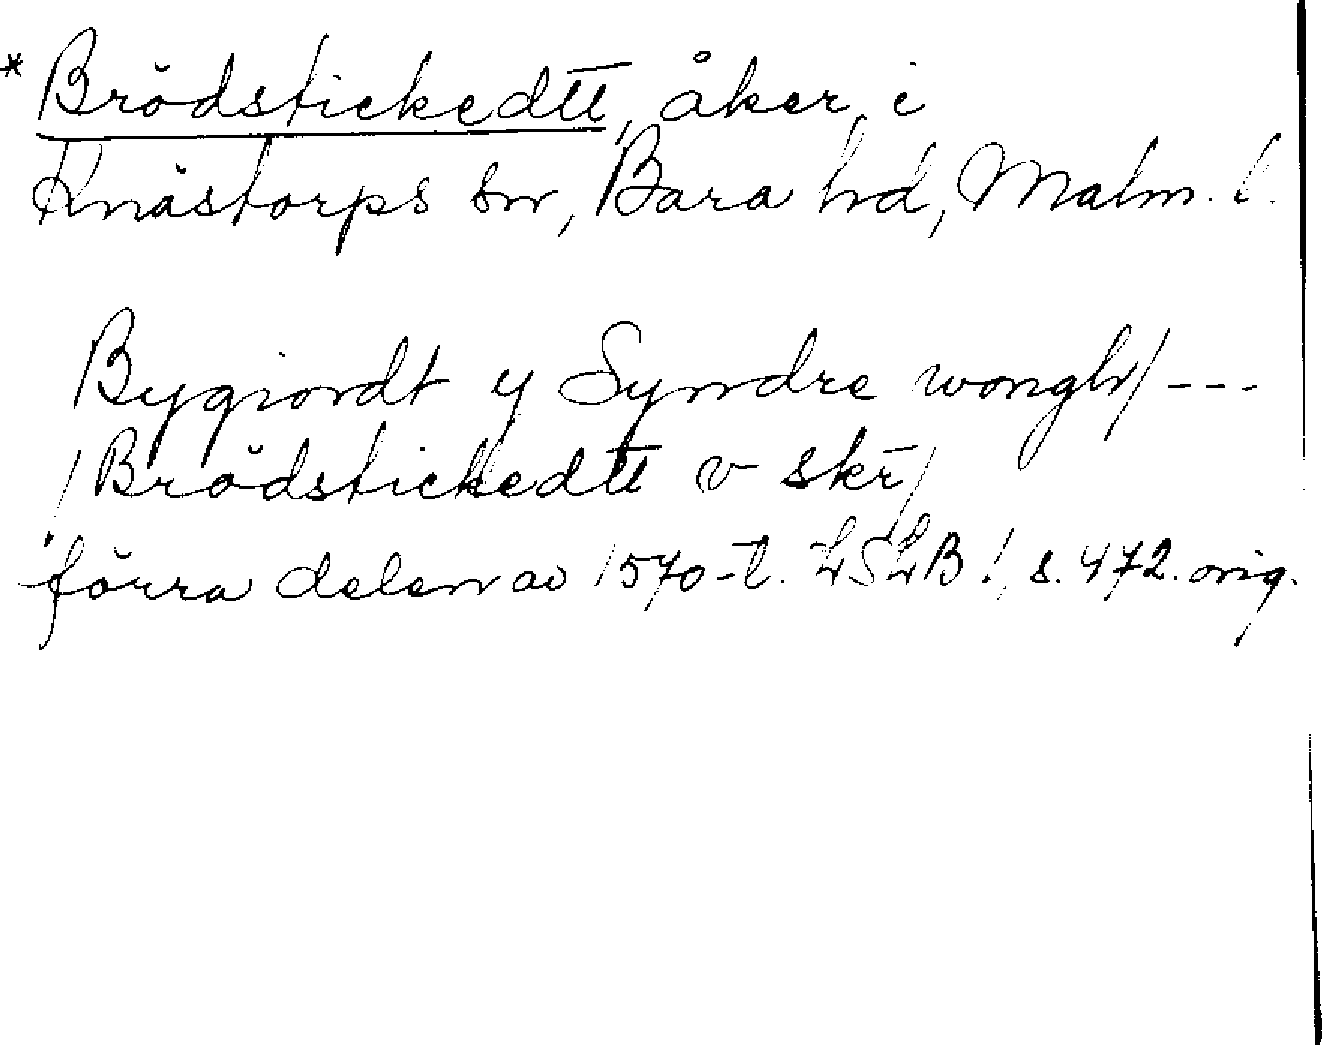 * Brödstickedtt, åker i
Knästorps sn, Bara hd, Malm. l.
Bygiordt y Syndre wongh / ---
/ Brödstickedtt v skr /
förra delen av 1570-t. LSLB 1, s. 472. orig.